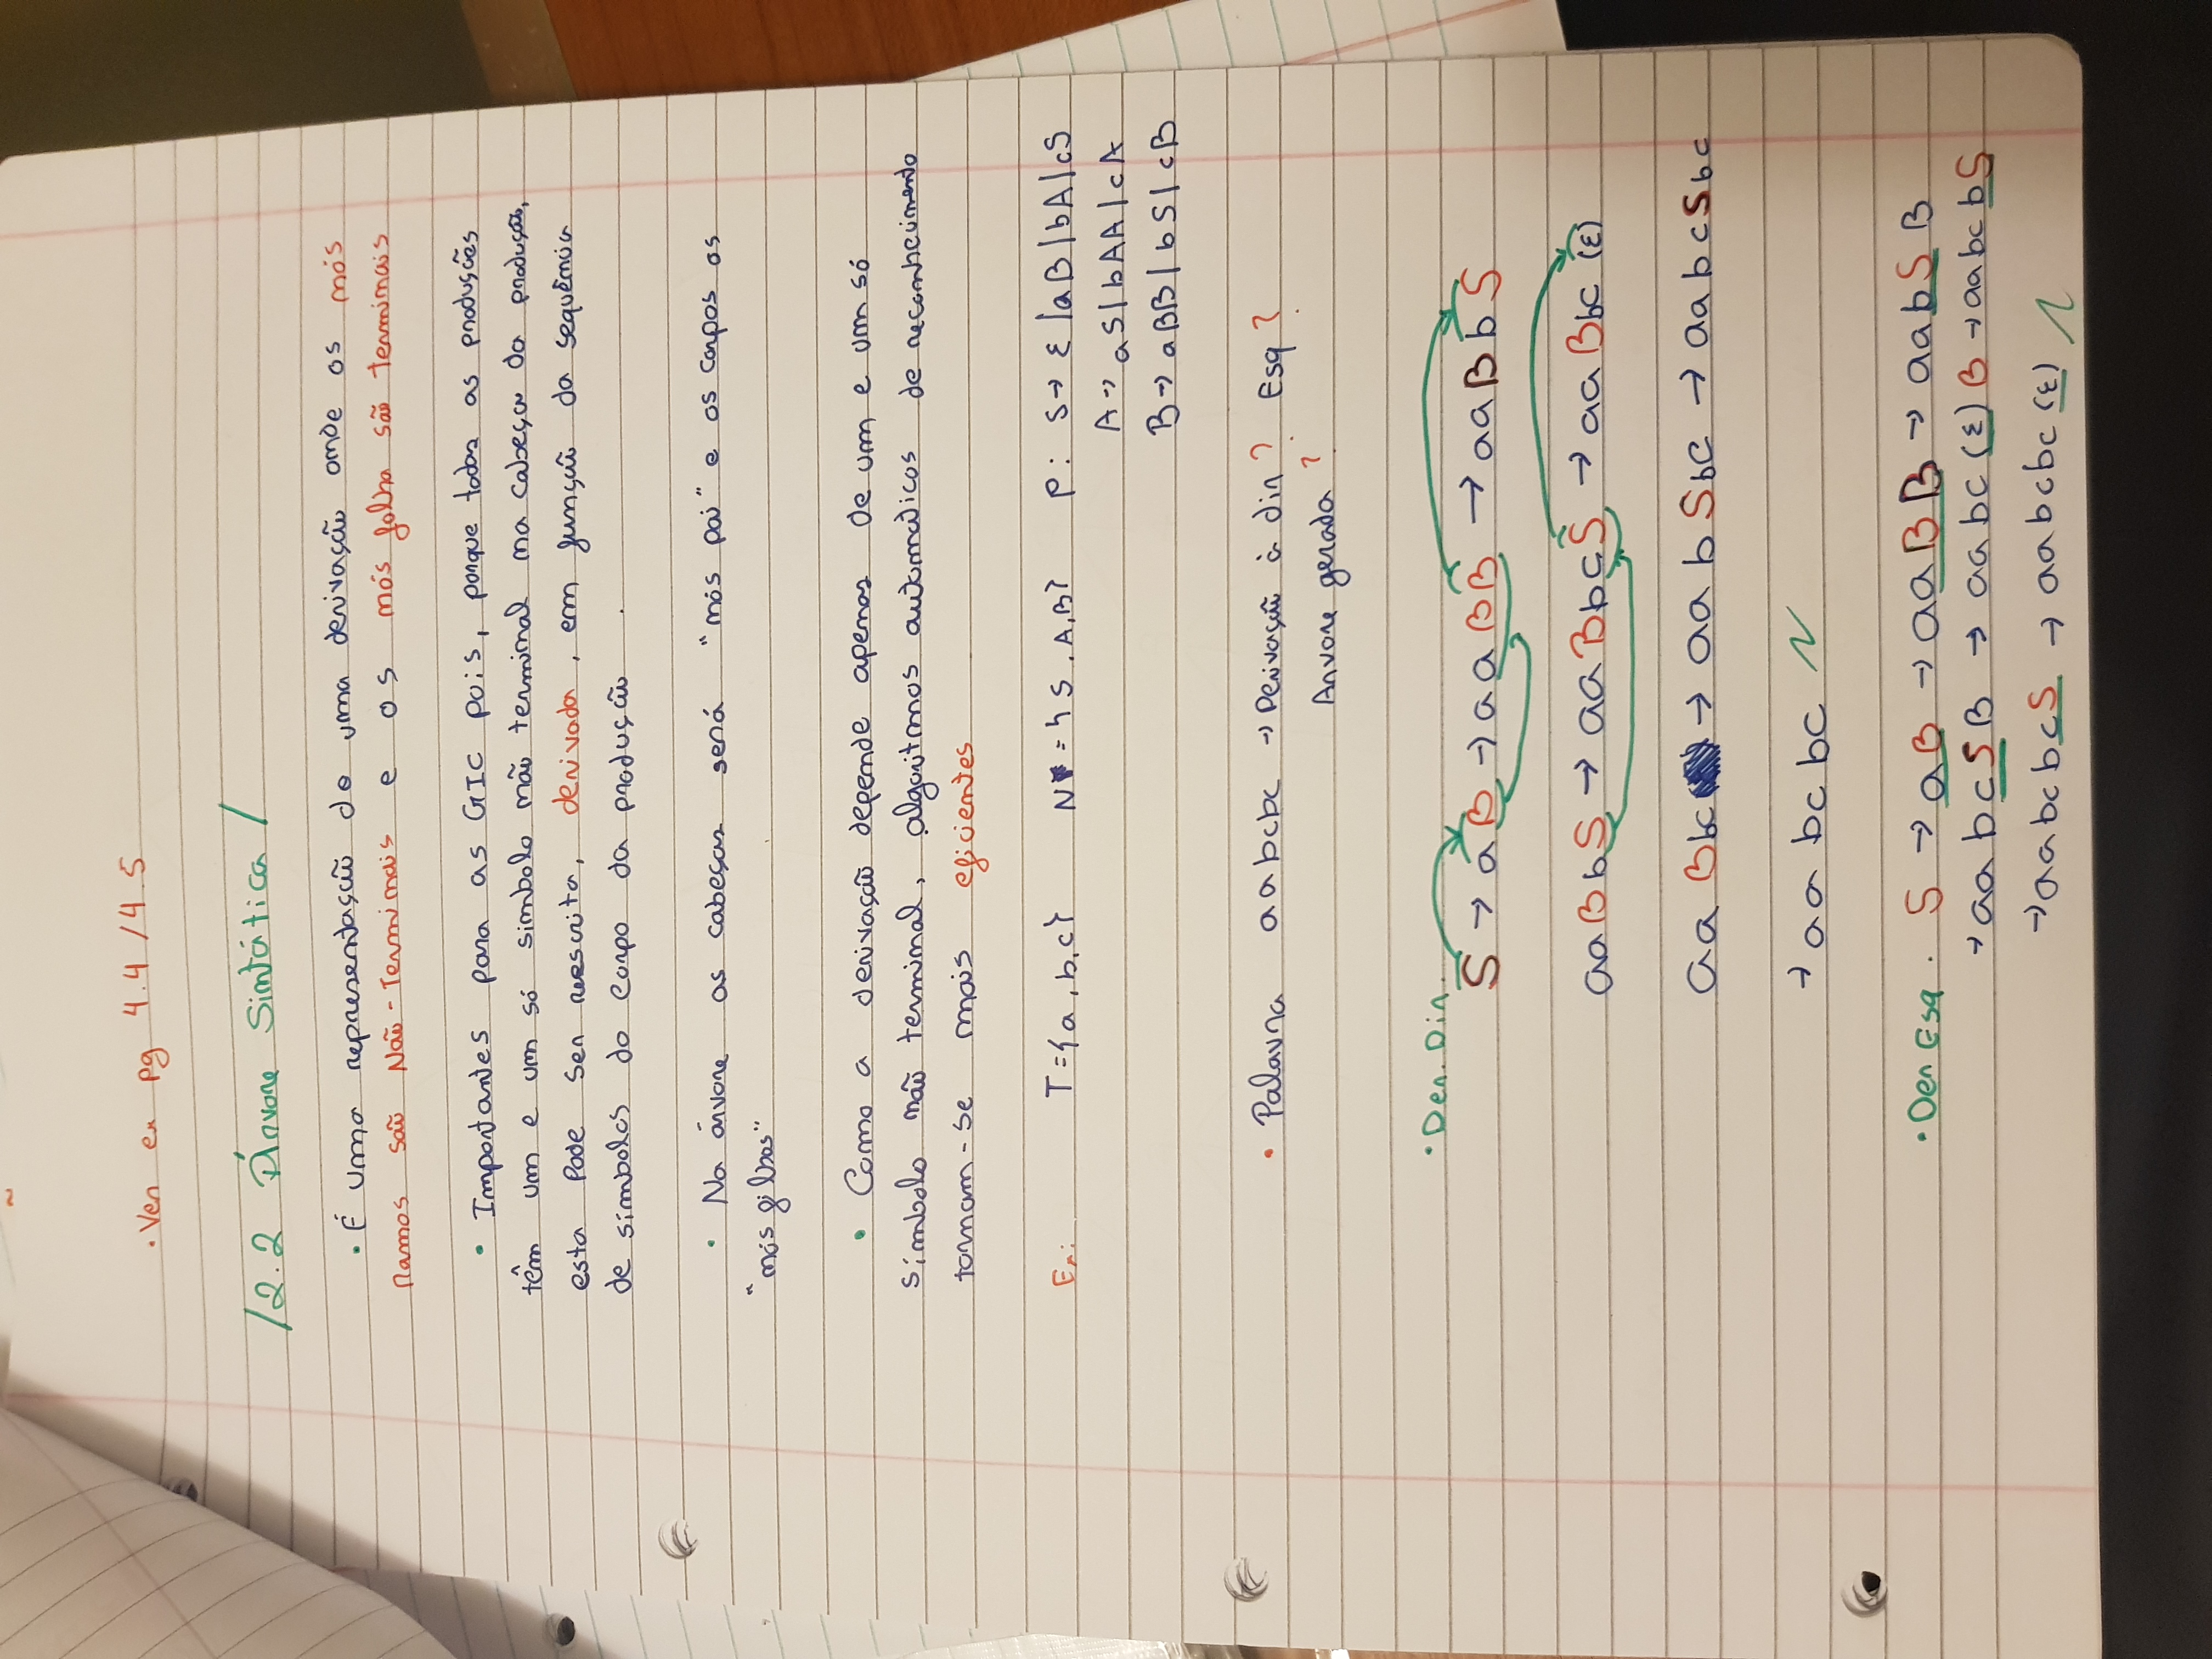 · Ver ex pg 4.4 / 4.5
/2.2 Árvore Sintática /
· É uma representação de uma derivação onde os nós
Ramos são Não-Terminais e os nós folha são terminais
· Importantes para as GIC pois, porque todas as produções
têm um e um só simbolo não terminal na cabeça da produção,
esta Pode ser reescrita, derivada, em função da sequência
de simbolos do corpo da produção.
· Na árvore as cabeças será "nós pai" e os corpos os
"nós filhos"
· Como a derivação depende apenas de um e um só
símbolo não terminal, algoritmos automáticos de reconhecimento
tornam-se mais eficientes
Ex: T={a,b,c} N={S,A,B} P: S→ ε |aB|bA|cS
A→ aS| bAA | cA
B→ aBB| bS| cB
· Palavra aabcbc → Derivação à dir? Esq?
Arvore gerada?
· Der. Dir.
S → aB → aaBB → aaBbS
aaBbS → aaBbcS → aaBbc (ε)
aaBbc → aabSbc → aabcSbc
→ aabcbc
· Der Esq. S → aB → aaBB → aabSB
→ aabcSB → aabc(ε)B → aabcbS
→ aabcbcS → aabcbc(ε)